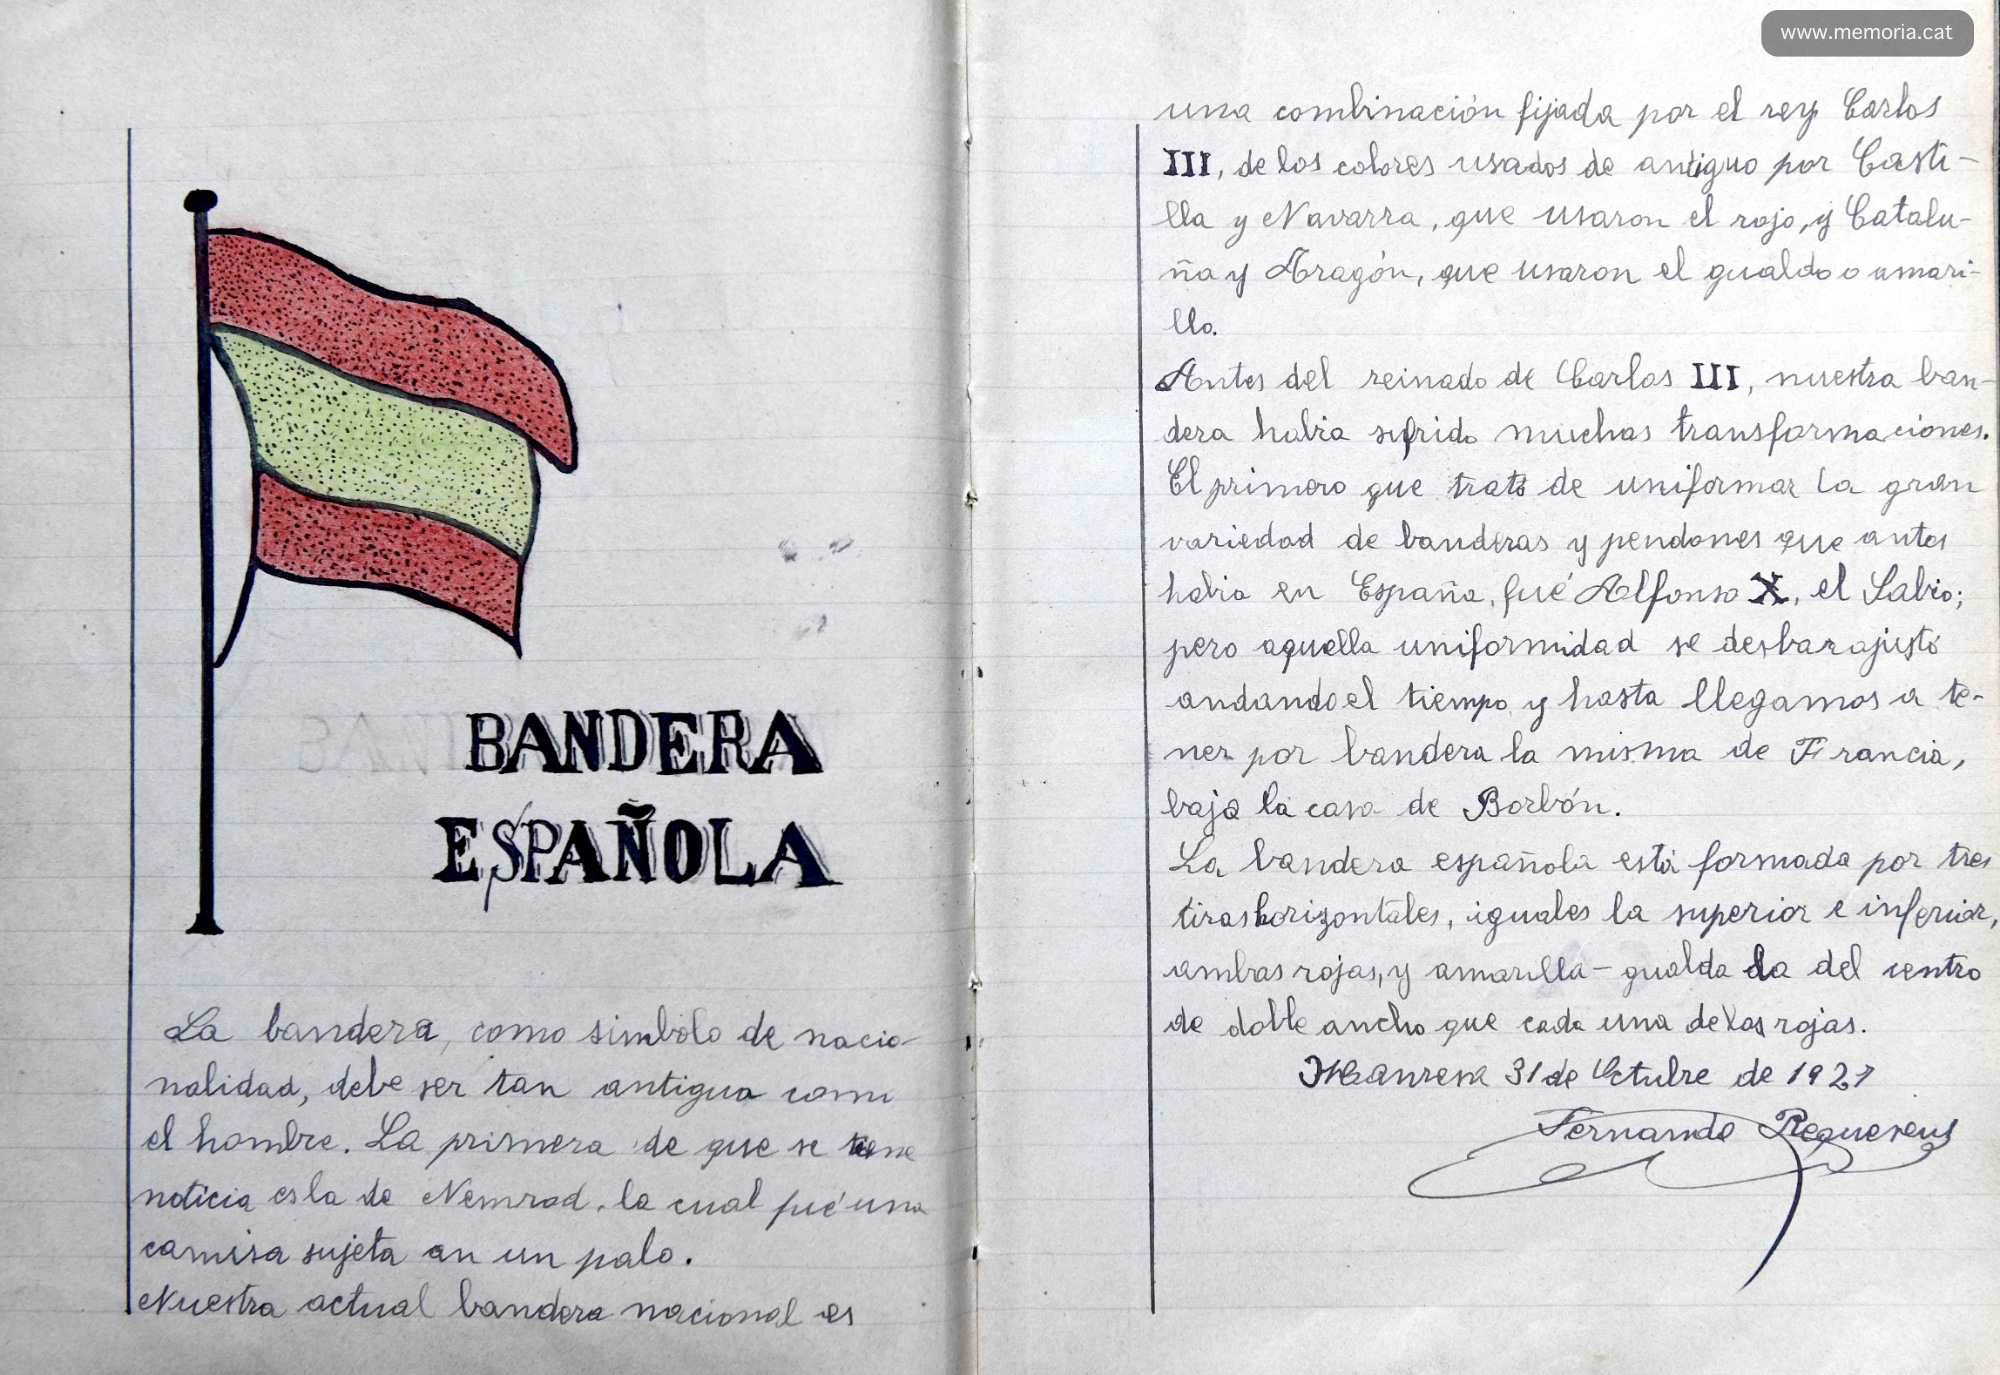 BANDERA
ESPAÑOLA
La bandera, como simbolo de nacio-
nalidad, debe ser tan antigua como
el hombre. La primera de que se tiene
noticia es la de Nemrod, la cual fué una
camisa sujeta en un palo.
Nuestra actual bandera nacional es
www.memoria.cat
una combinación fijada por el rey Carlos
III, de los colores usados de antiguo por Casti-
lla y Navarra, que usaron el rojo, y Catalu-
ña y Aragón, que usaron el gualdo o amari-
llo.
Antes del reinado de Carlos III, nuestra ban-
dera habia sufrido muchas transformaciones.
El primero que trató de uniformar la gran
variedad de banderas y pendones que antes
habia en España, fué Alfonso X, el Sabio;
pero aquella uniformidad se desbarajustó
andando el tiempo y hasta llegamos a te-
ner por bandera la misma de Francia,
bajo la casa de Borbón.
La bandera española está formada por tres
tiras horizontales, iguales la superior e inferior,
ambas rojas, y amarilla-gualda la del centro
de doble ancho que cada una de las rojas.
Manresa 31 de Octubre de 1927
Fernando Requesens